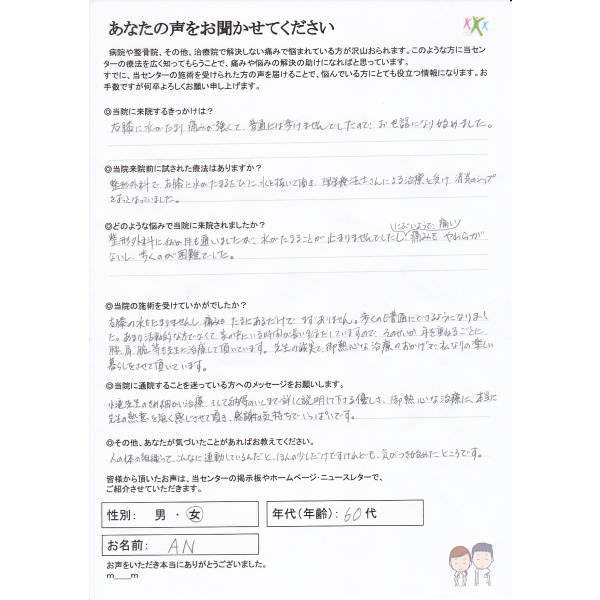 あなたの声をお聞かせてください
病院や整骨院、その他、治療院で解決しない痛みで悩まれている方が沢山おられます。このような方に当セン
ターの療法を広く知ってもらうことで、痛みや悩みの解決の助けになればと思っています。
すでに、当センターの施術を受けられた方の声を届けることで、悩んでいる方にとても役立つ情報になります。お
手数ですが何卒よろしくお願い申し上げます。
◎当院に来院するきっかけは？
右膝に水がたまり痛みが強くて、普通には歩けませんでしたので、お世話になり始めました。
◎当院来院前に試された療法はありますか？
整形外科で、右膝に水のたまるたびに、水を抜いて頂き、理学療法士さんによる治療を受け、消炎のシップ
をずっとはっていました。
◎どのような悩みで当院に来院されましたか？
整形外科に 通いましたが、水がたまることが止まりませんでしたし、痛みも やわらが
ないし、歩くのが困難でした。
◎当院の施術を受けていかがでしたか？
右膝の水もたまりませんし、痛みも たまにあるだけで、まずありません。歩くのも普通にできるようになりまし
た。あまり活動的な方でなくて、家の中にいる時間が長い生活をしていますので、そのせいか、年を重ねるごとに、
腰、肩、腕、等も先生に治療して頂いています。先生の誠実で、御熱心な治療のおかげで、私なりの楽しい
暮らしをさせて頂いています。
◎当院に通院することを迷っている方へのメッセージをお願いします。
先生のきめ細かい治療、そして 詳しく説明して下さる優しさ、御熱心な治療に、本当に
先生の熱意を強く感じさせて頂き、感謝の気持ちでいっぱいです。
◎その他、あなたが気づいたことがあればお教えてください。
人の体の組織って、こんなに連動しているんだと、ほんの少しだけですけれども、気がつき始めたところです。
皆様から頂いたお声は、当センターの掲示板やホームページ・ニュースレターで、
ご紹介させていただきます。
性別： 男 ・ 女
年代（年齢）：60代
お名前： AN
お声をいただき本当にありがとうございました。
m＿＿m